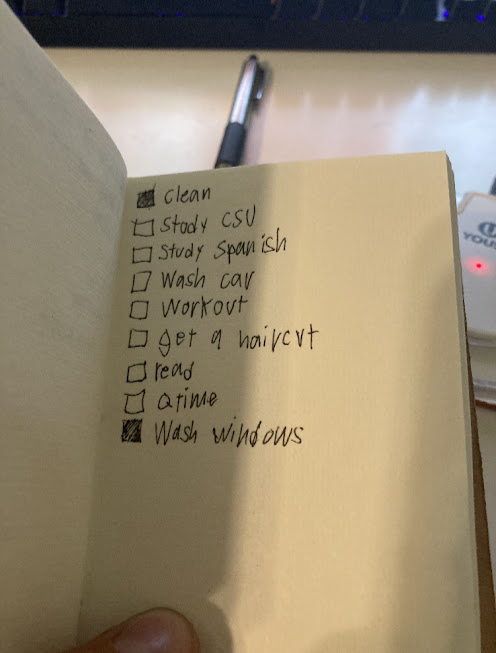 clean
Study CSU
Study Spanish
Wash car
Workout
get a haircut
read
Qtime
Wash windows
YOUS